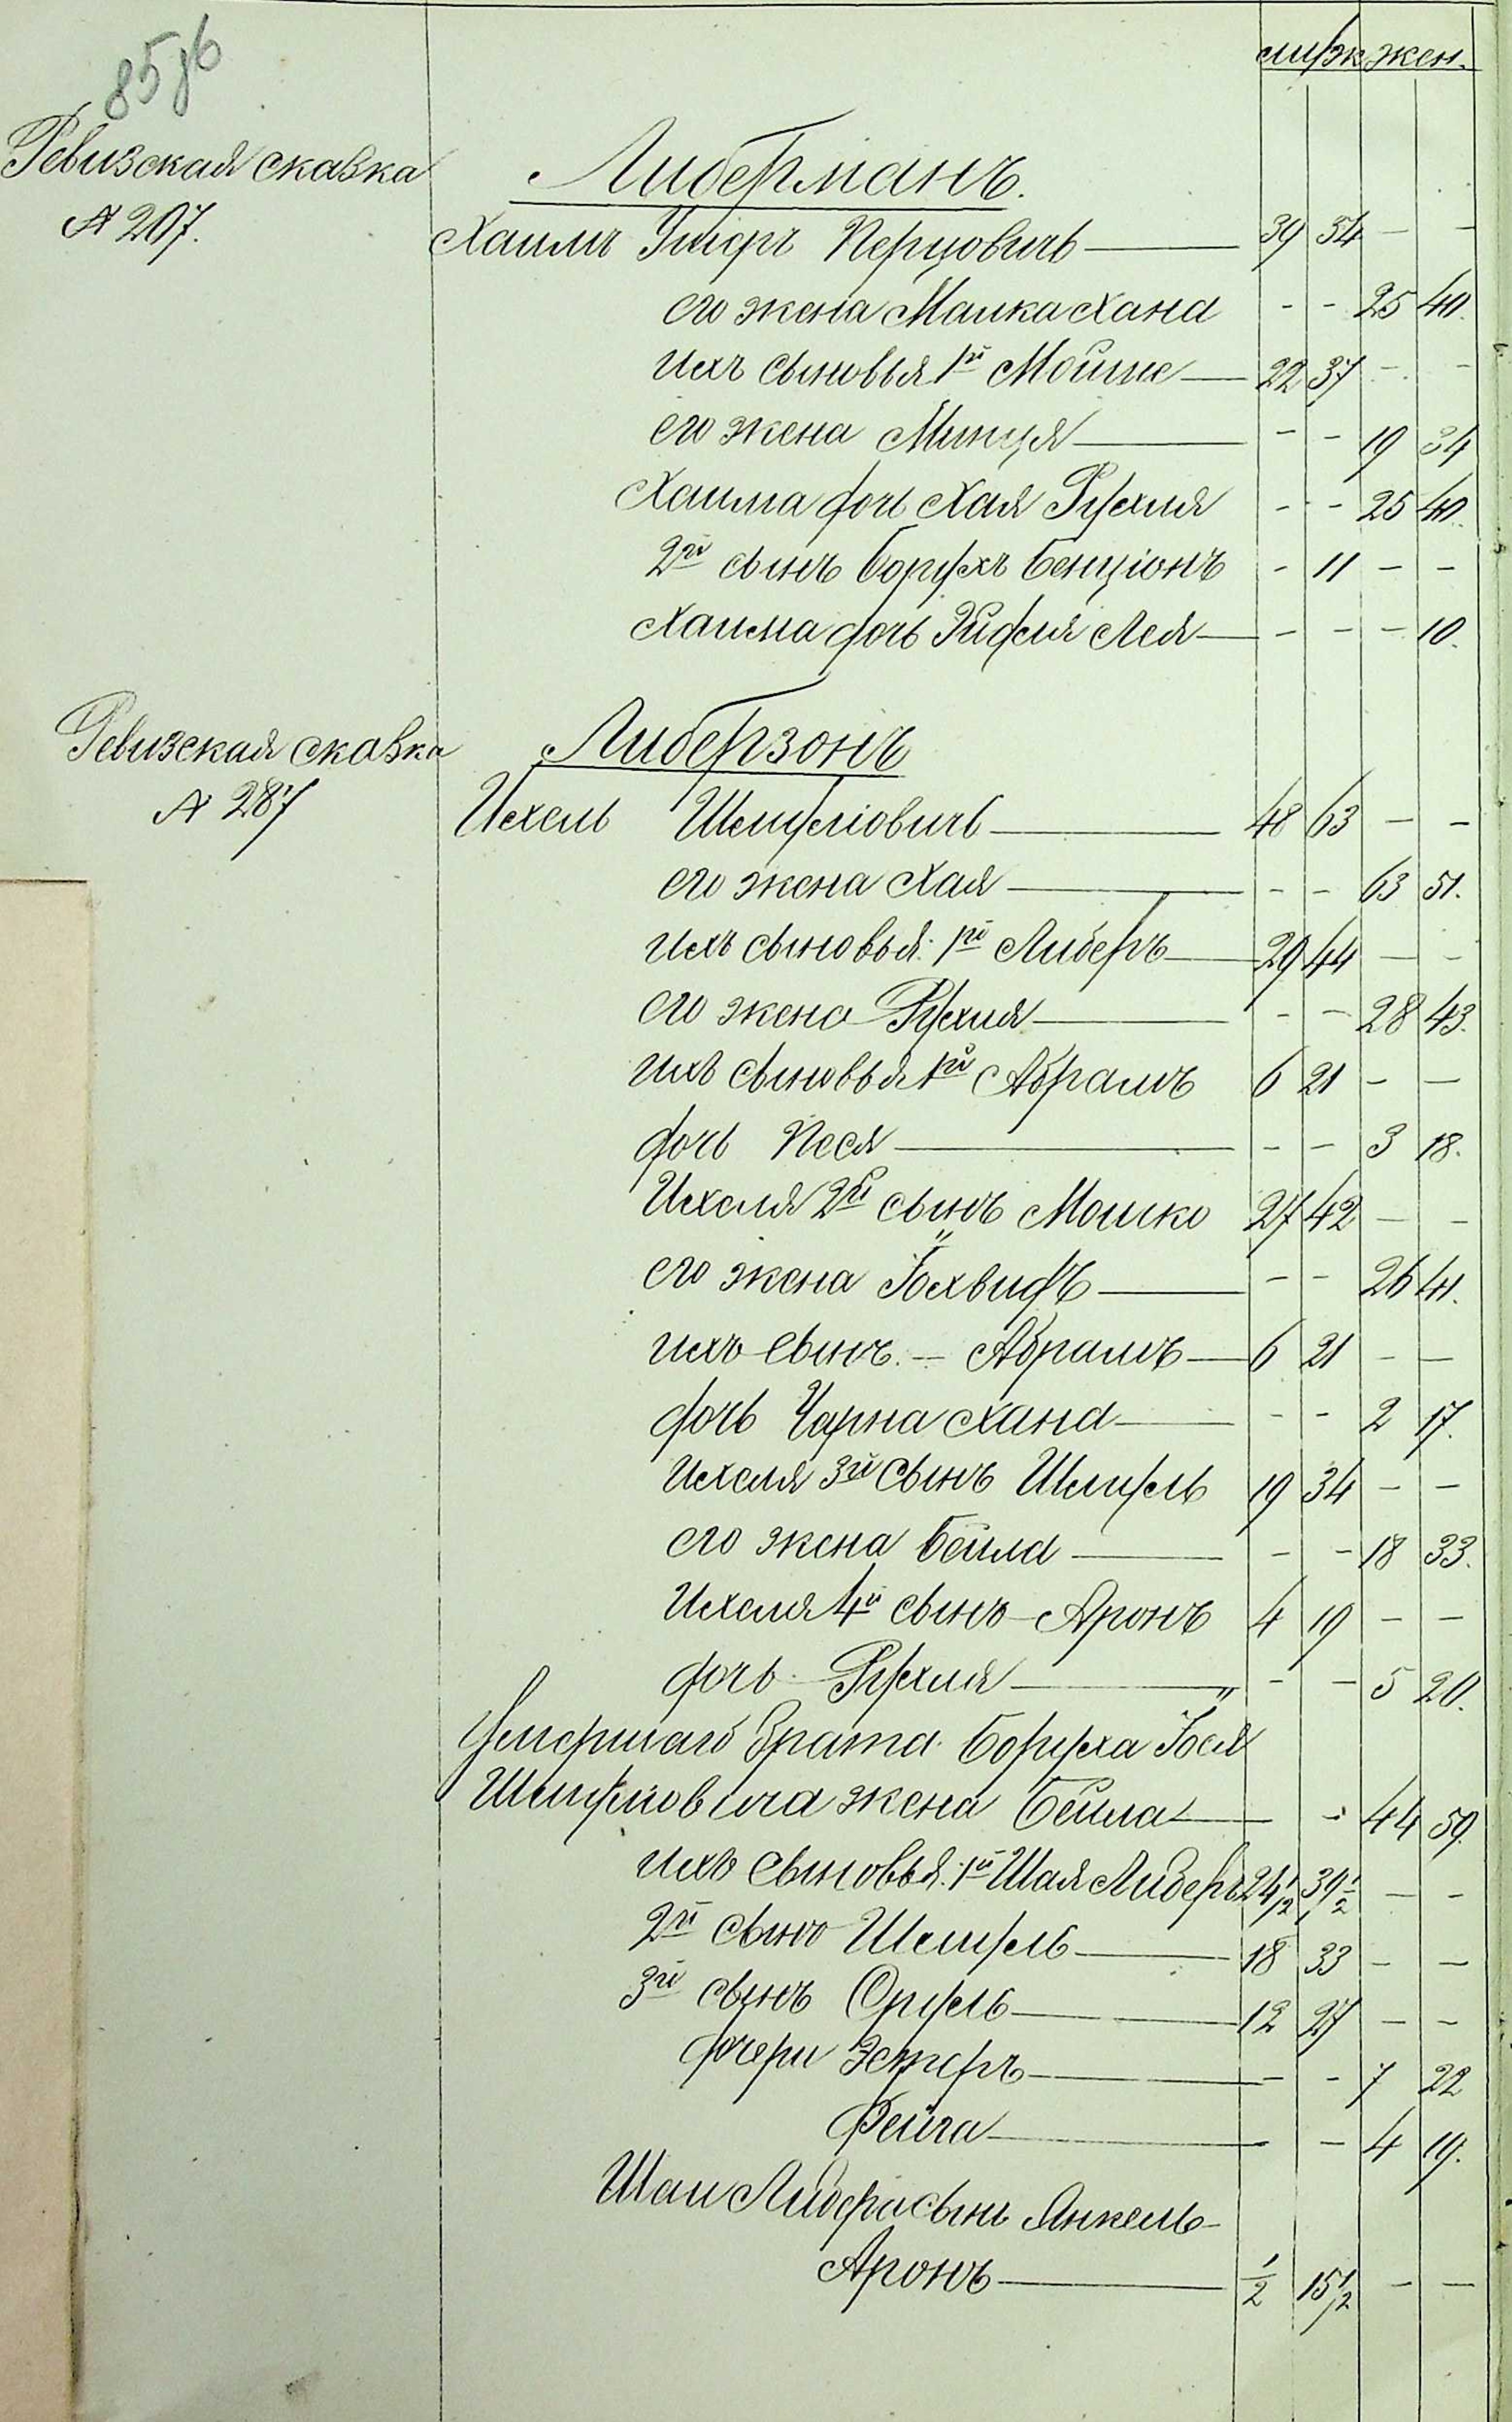 85 об
муж жен.
Ревизская сказка
№ 207.
Либерманъ.
Хаимъ Ушеръ Перцовичъ — 39 54 - -
его жена Малка Хана - - 25 40.
ихъ сыновья 1й Мойше — 22 37 - -
его жена Минця — - - 19 34
Хаима дочь Хая Рухля - - 25 40.
2й сынъ Борухъ Бенціонъ - 11 - -
Хаима дочь Эйдля Лея — - - - 10.
Ревизская сказка
№ 287
Либерзонъ
Ихель Шмуліовичъ — 48 63 - -
его жена Хая — - - 63 51.
ихъ сыновья: 1й Либеръ — 29 44 - -
его жена Рухля — - - 28 43.
ихъ сыновья 1й Абрамъ 6 21 - -
дочь Песя — - - 3 18.
Ихеля 2й сынъ Мошко 27 42 - -
его жена Іохвидъ — - - 26 41.
ихъ сынъ. - Абрамъ — 6 21 - -
дочь Чарна Хана — - - 2 17.
Ихеля 3й сынъ Шмуль 19 34 - -
его жена Бейла — - - 18 33.
Ихеля 4й сынъ Аронъ 4 19 - -
дочь Рухля — - - 5 20.
Умершаго брата Боруха Іося
Шмуліовича жена Бейла — - 44 59.
ихъ сыновья: 1й Шая Либеръ 24 1/2 39 1/2 - -
2й сынъ Шмуль — 18 33 - -
3й сынъ Сруль — 12 27 - -
дочери Эстеръ — - - 7 22
Фейга — - - 4 19.
Шаи Либера сынъ Янкель-
Аронъ — 1/2 15 1/2 - -